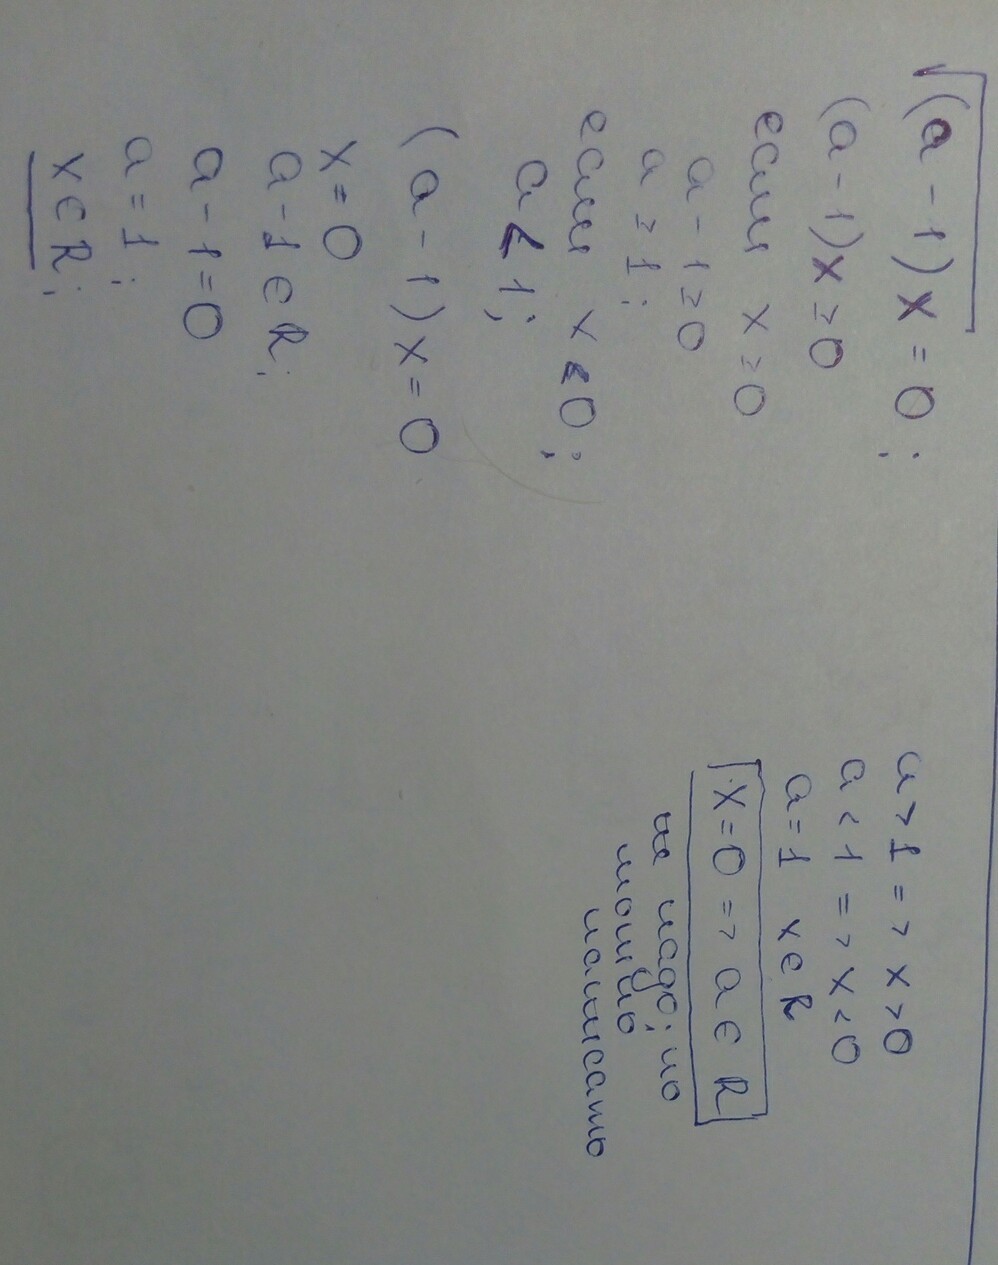 √(a - 1)x = 0;
(a - 1)x ≥ 0
если x ≥ 0
a - 1 ≥ 0
a ≥ 1;
если x < 0;
a < 1;
(a - 1)x = 0
x = 0
a - 1 ∈ R;
a - 1 = 0
a = 1;
x ∈ R;
a > 1 => x > 0
a < 1 => x < 0
a = 1 x ∈ R
x = 0 => a ∈ R
не надо, но
можно
написать